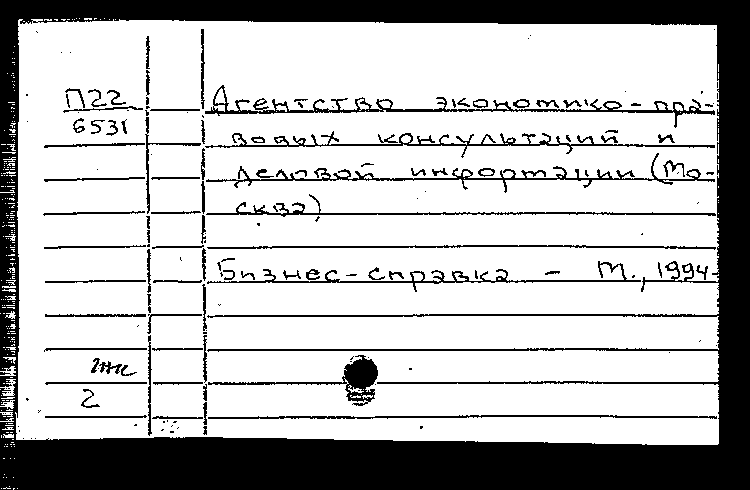 П22
6531
Агентство экономико-пра-
вовых консультаций и
деловой информации (Мо-
сква)
Бизнес-справка - М., 1994-
2